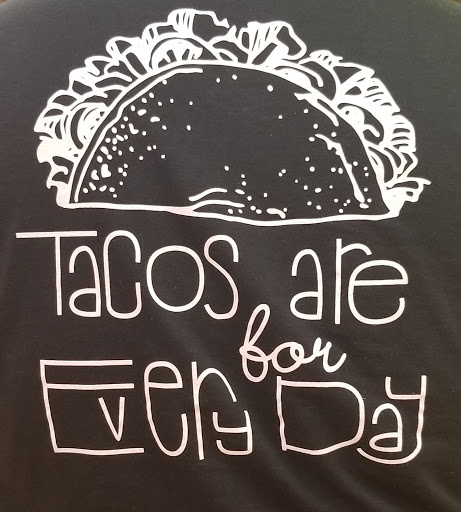 Tacos are
for
Every Day